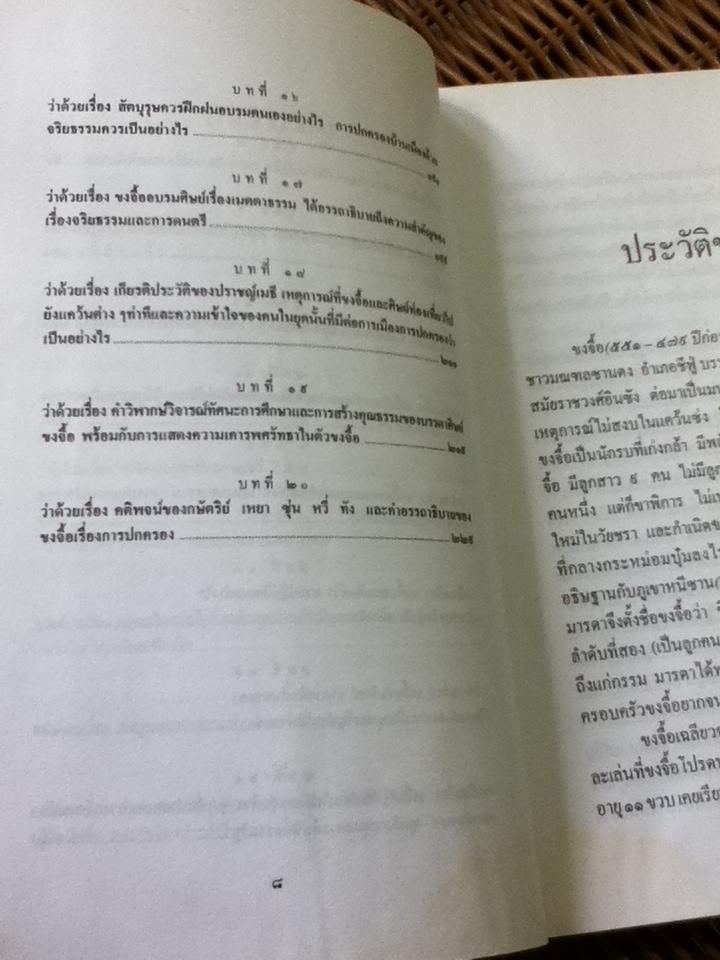 บทที่ ๑๖
ว่าด้วยเรื่อง สัตบุรุษควรฝึกฝนอบรมตนเองอย่างไร การปกครองบ้านเมืองด้วย
จริยธรรมควรเป็นอย่างไร
บทที่ ๑๗
ว่าด้วยเรื่อง ขงจื้ออบรมศิษย์เรื่องเมตตาธรรม ได้อรรถาธิบายถึงความสำคัญของ
เรื่องจริยธรรมและการดนตรี
บทที่ ๑๘
ว่าด้วยเรื่อง เกียรติประวัติของปราชญ์เมธี เหตุการณ์ที่ขงจื้อและศิษย์ท่องเที่ยวไป
ยังแคว้นต่าง ๆท่าทีและความเข้าใจของคนในยุคนั้นที่มีต่อการเมืองการปกครองว่า
เป็นอย่างไร ๒๑๐
บทที่ ๑๙
ว่าด้วยเรื่อง คำวิพากษ์วิจารณ์ทัศนะการศึกษาและการสร้างคุณธรรมของบรรดาศิษย์
ขงจื้อ พร้อมกับการแสดงความเคารพศรัทธาในตัวขงจื้อ ๒๑๙
บทที่ ๒๐
ว่าด้วยเรื่อง คติพจน์ของกษัตริย์ เหยา ซุ่น หวี่ ทัง และคำอรรถาธิบายของ
ขงจื้อเรื่องการปกครอง ๒๒๙
๘
ประวัติ
ขงจื้อ(๕๕๑ – ๔๗๙ ปีก่อ
ชาวมณฑลซานตง อำเภอชีฟู่ บรร
สมัยราชวงศ์อินซัง ต่อมาเป็น
เหตุการณ์ไม่สงบในแคว้นซ่ง
ขงจื้อเป็นนักรบที่เก่งกล้า มี
จื้อ มีลูกสาว ๙ คน ไม่มีลูก
คนหนึ่ง แต่ก็ขาพิการ
ใหม่ในวัยชรา และกำเนิด
ที่กลางกระหม่อมบุ๋มลงไ
อธิษฐานกับภูเขาหนีซาน(
มารดาจึงตั้งชื่อขงจื้อว่า
ลำดับที่สอง (เป็นลูกคน
ถึงแก่กรรม มารดาได้
ครอบครัวขงจื้อยากจน
ขงจื้อเฉลียว
ละเล่นที่ขงจื้อโปรด
อายุ ๑๑ ขวบ เคยเรีย